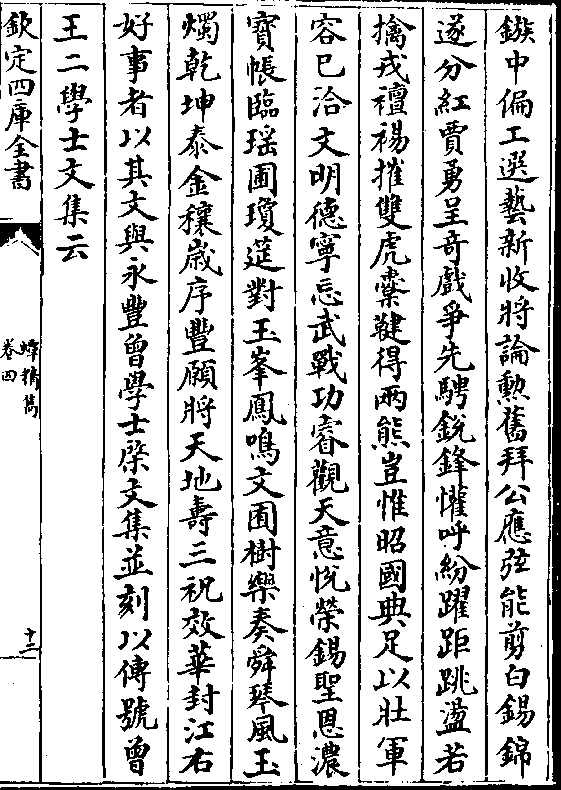 鏃中偏工選藝新收將論勲舊拜公應弦能剪白錫錦
遂分紅賈勇呈奇戲爭先騁銳鋒懽呼紛躍距跳盪若
擒戎襢裼摧雙虎櫜鞬得兩熊豈惟昭國典足以壯軍
容已洽文明德寧忘武戰功睿觀天意悅榮錫聖恩濃
寳帳臨瑶圃瓊筵對玉峯鳳鳴文囿樹樂奏舜琴風玉
燭乾坤泰金穰歲序豐願將天地壽三祝效華封江右
好事者以其文與永豐曾學士棨文集並刻以傳號曾
王二學士文集云
欽定四庫全書
蟫精雋
卷四
十三